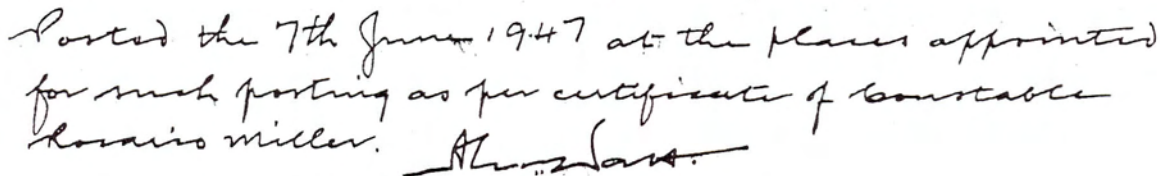 Posted the 7th June 1947 at the places appointed
for such posting as per certificate of Constable
Rosairo Miller.